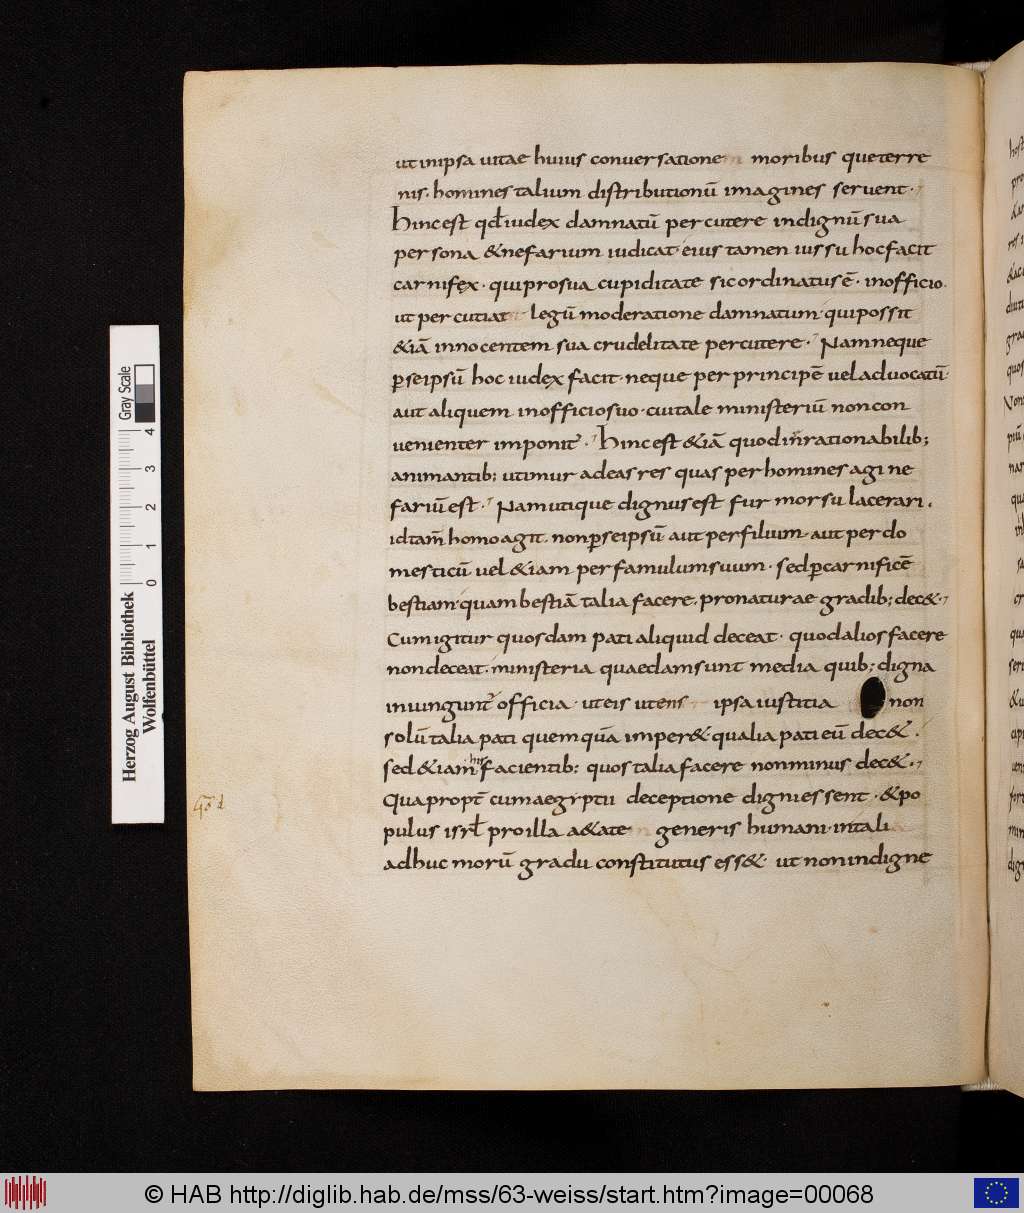 ut in ipsa vitae huius conversatione moribus que terre
nis. homines talium distributionū imagines servent.
hinc est qđ iudex damnatū percutere indignū sua
persona & nefarium iudicat. eius tamen iussu hoc facit
carnifex. qui pro sua cupiditate sic ordinatus ē. in officio.
ut percutiat legū moderatione damnatum. qui possit
&iā innocentem sua crudelitate percutere. Nam neque
ꝑ se ipsū hoc iudex facit. neque per principē vel advocatū.
aut aliquem in officio suo. cui tale ministeriū non con
venienter imponit̄. hinc est &iā quod inrationabilib;
animantib; utimur ad eas res quas per homines agi ne
fariū est. Nam utique dignus est fur morsu lacerari.
id tam̄ homo agit. non ꝑ se ipsū aut per filium. aut per do
mesticū vel &iam per famulum suum. sed ꝑ carnificē
bestiam. quam bestiā talia facere. pro naturae gradib; dec&.
Cum igitur quosdam pati aliquid deceat. quod alios facere
non deceat. ministeria quaedam sunt media quib; digna
iniungunt̄ officia. ut eis utens ipsa iustitia non
solū talia pati quemquā imper& qualia pati eū dec&.
sed &iam his facientib: quos talia facere non minus dec&.
Quapropt̄ cum aegiptii deceptione digni essent. & po
pulus isrł pro illa a&ate generis humani. in tali
adhuc morū gradu constitutus ess&. ut non indigne
Herzog August Bibliothek
Wolfenbüttel
0 1 2 3 4
Gray Scale
© HAB http://diglib.hab.de/mss/63-weiss/start.htm?image=00068